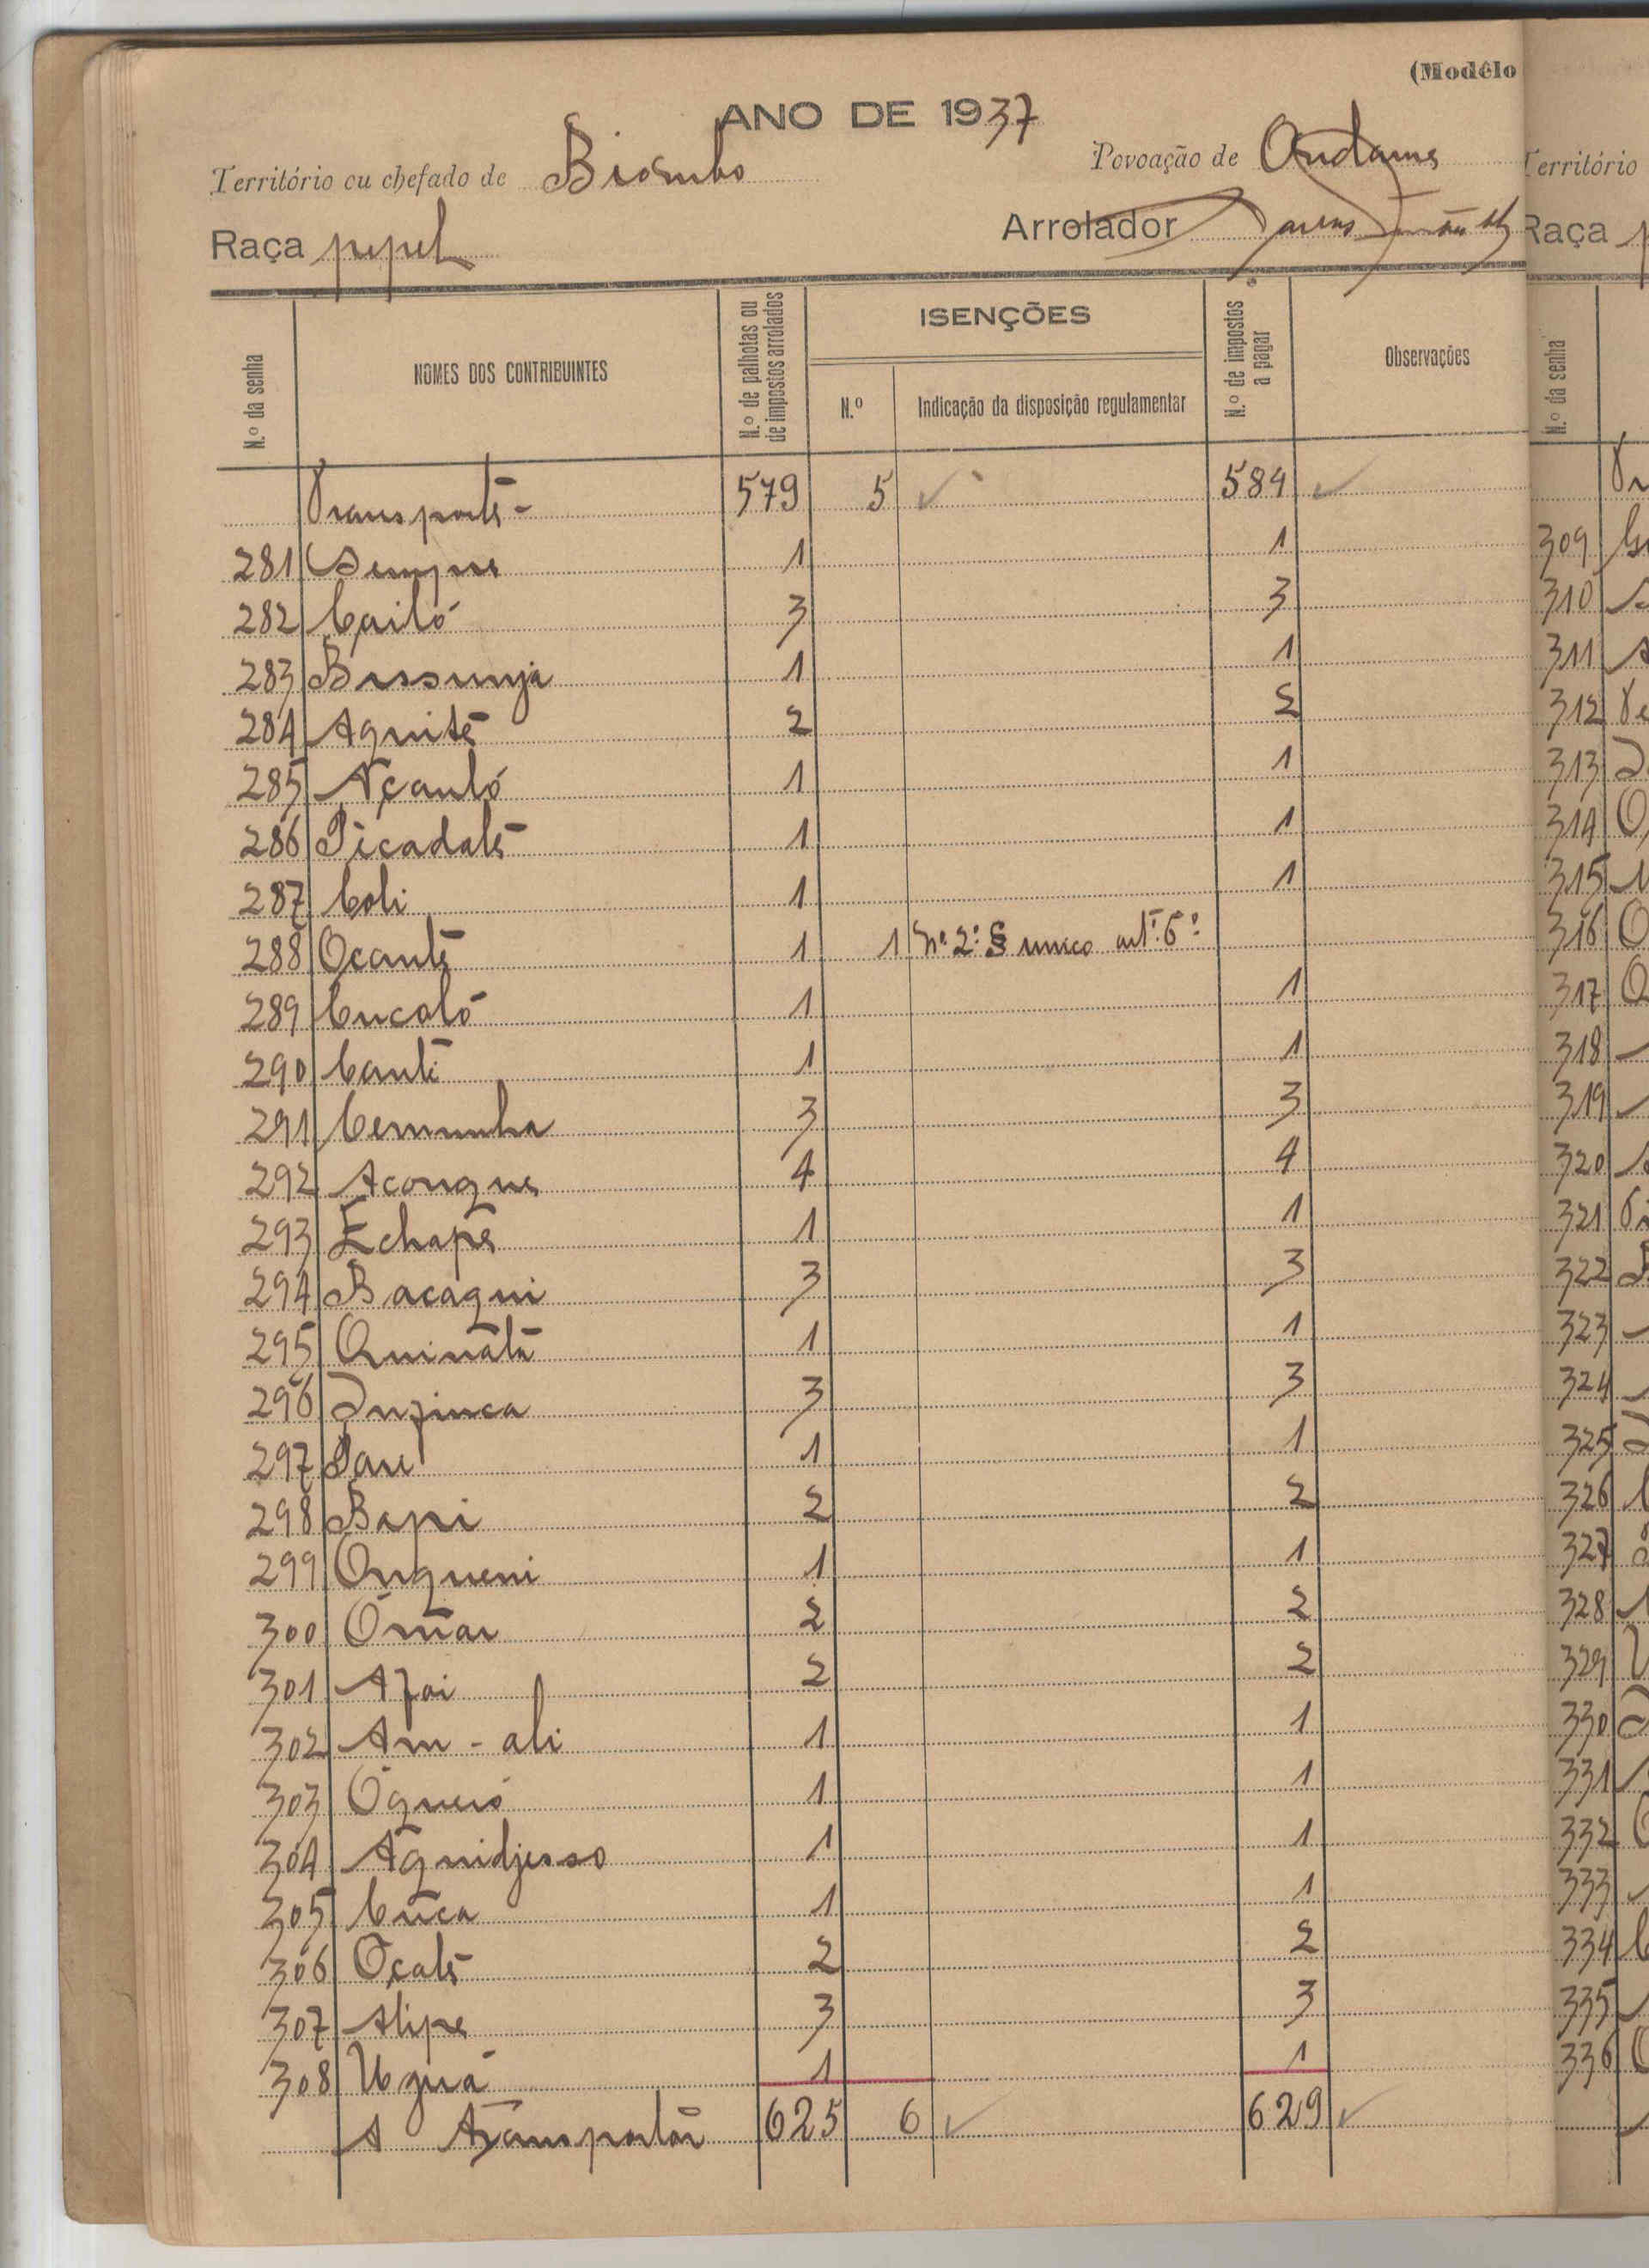 (Modêlo
ANO DE 1937
Território ou chefado de Biombo Povoação de Ondame
Raça pepel Arrolador
N.º da senha NOMES DOS CONTRIBUINTES N.º de palhotas ou de impostos arrolados ISENÇÕES N.º Indicação da disposição regulamentar N.º de impostos a pagar Observações
Transporte - 579 5 ✓ 584 ✓
281 Sempre 1 1
282 Cailó 3 3
283 Bissunja 1 1
284 Aquite 2 2
285 Açanló 1 1
286 Picadalē 1 1
287 Coli 1 1
288 Ocantē 1 1 nº 2º § unico artº 6º
289 Cucoló 1 1
290 Canti 1 1
291 Cemunha 3 3
292 Acongue 4 4
293 Echapē 1 1
294 Bacaqui 3 3
295 Quinātā 1 1
296 3 3
297 1 1
298 Bapi 2 2
299 Onqueni 1 1
300 Omar 2 2
301 Azai 2 2
302 Am - ali 1 1
303 1 1
304 Aquidjesso 1 1
305 Cuca 1 1
306 Oçalē 2 2
307 Alipe 3 3
308 1 1
A Transportar 625 6 ✓ 629 ✓
Território
Raça
N.º da senha
309
310
311
312
313
314
315
316
317
318
319
320
321
322
323
324
325
326
327
328
329
330
331
332
333
334
335
336